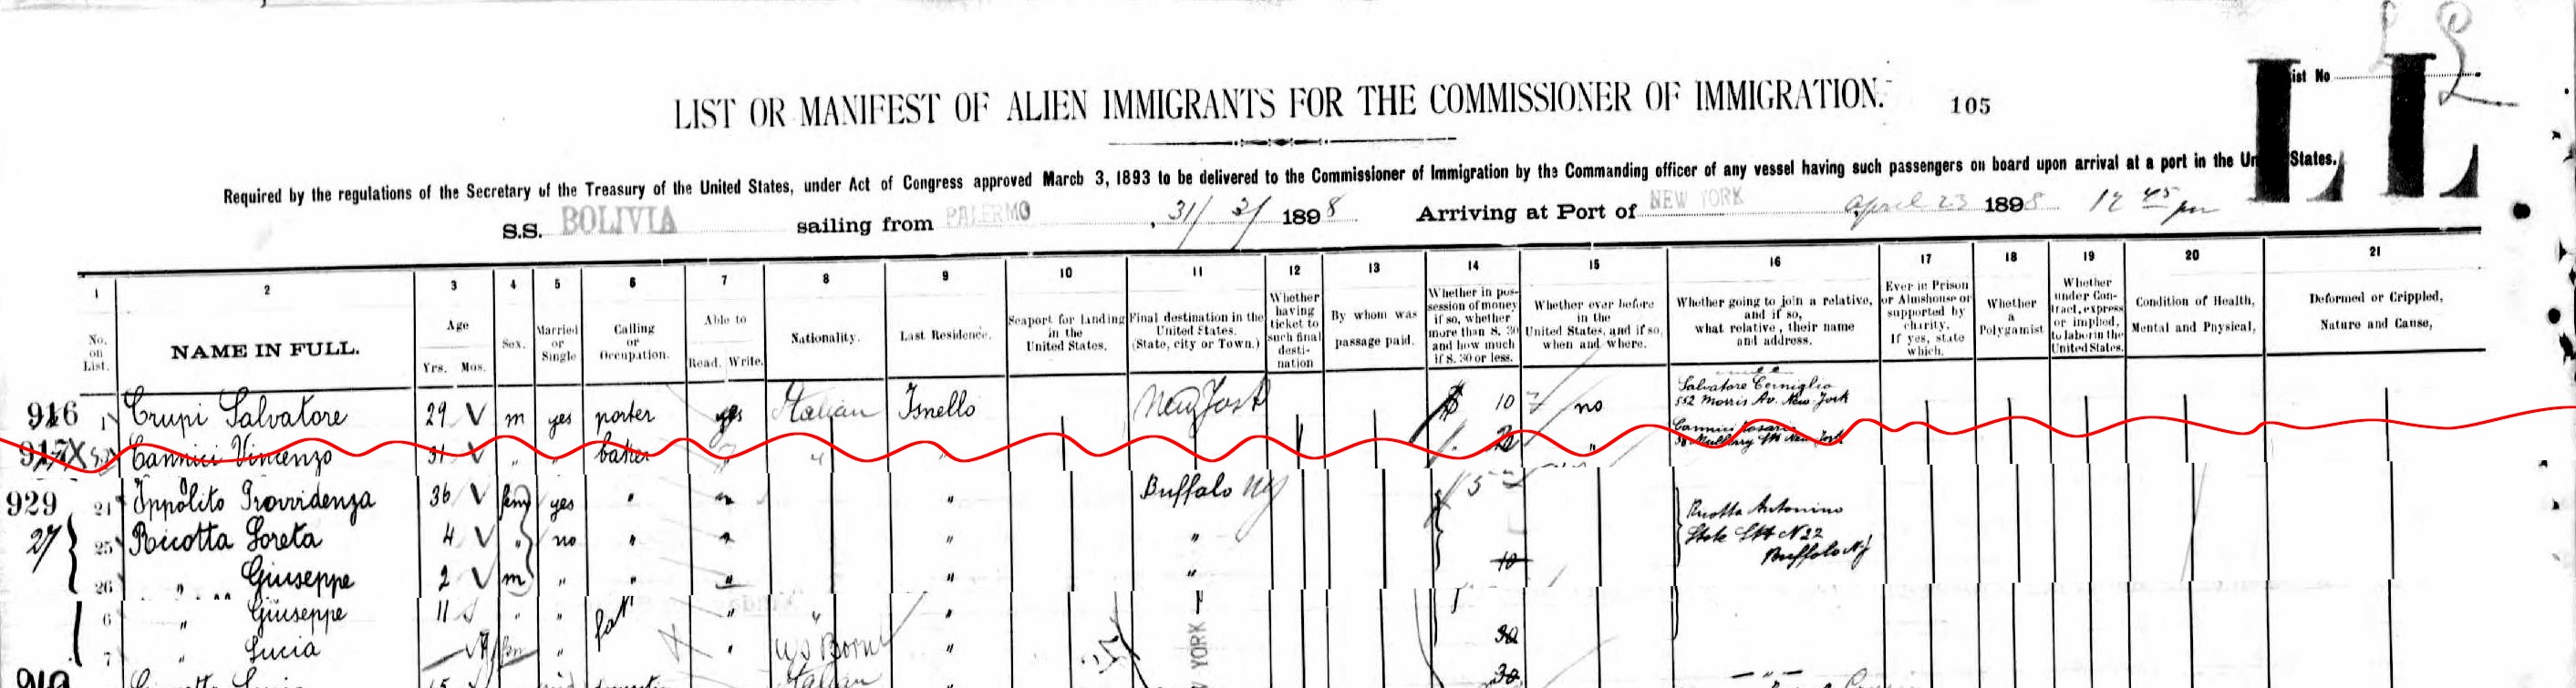 List No
LIST OR MANIFEST OF ALIEN IMMIGRANTS FOR THE COMMISSIONER OF IMMIGRATION. 105
Required by the regulations of the Secretary of the Treasury of the United States, under Act of Congress approved March 3, 1893 to be delivered to the Commissioner of Immigration by the Commanding officer of any vessel having such passengers on board upon arrival at a port in the United States.
S.S. BOLIVIA sailing from PALERMO, 31/3/ 1898 Arriving at Port of NEW YORK April 23 1898 12 45 pm
LL
1 2 3 4 5 6 7 8 9 10 11 12 13 14 15 16 17 18 19 20 21
No. on List.
NAME IN FULL.
Age
Yrs. Mos.
Sex.
Married or Single
Calling or Occupation.
Able to
Read. Write.
Nationality.
Last Residence.
Seaport for landing in the United States.
Final destination in the United States. (State, city or Town.)
Whether having ticket to such final destination
By whom was passage paid.
Whether in possession of money if so, whether more than $. 30 and how much if $. 30 or less.
Whether ever before in the United States, and if so, when and where.
Whether going to join a relative, and if so, what relative, their name and address.
Ever in Prison or Almshouse or supported by charity. If yes, state which.
Whether a Polygamist
Whether under Contract, express or implied, to labor in the United States.
Condition of Health, Mental and Physical,
Deformed or Crippled, Nature and Cause,
916 1 Crupi Salvatore 29 m yes porter yes Italian Isnello New York $ 10 no Salvatore Cerniglio
552 Morris Av. New York
917 X Cannici Vincenzo 31 " " baker " " " Cannici Rosario
Mulberry Stt New York
929 24 Ippolito Provvidenza 36 fem yes " " " Buffalo NY 5
27 25 Ricotta Loreta 4 " no " " " " Antonino
Stt N 22
Buffalo NY
26 " Giuseppe 2 m " " " " " 10
6 " Giuseppe 11 " " " " "
7 " Lucia fm " " US Born " YORK 30
Italian " 30